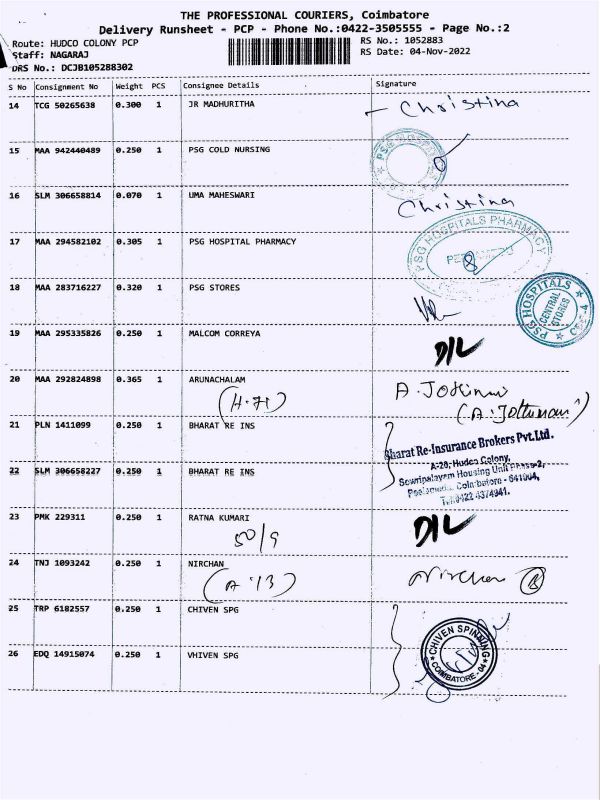 THE PROFESSIONAL COURIERS, Coimbatore
Delivery Runsheet - PCP - Phone No.:0422-3505555 - Page No.:2
Route: HUDCO COLONY PCP
RS No.: 1052883
Staff: NAGARAJ
RS Date: 04-Nov-2022
DRS No.: DCJB105288302
S No Consignment No Weight PCS Consignee Details Signature
14 TCG 50265638 0.300 1 JR MADHURITHA Christina
15 MAA 942440489 0.250 1 PSG COLD NURSING
16 SLM 306658814 0.070 1 UMA MAHESWARI Christina
17 MAA 294582102 0.305 1 PSG HOSPITAL PHARMACY
PSG HOSPITALS PHARMACY
18 MAA 283716227 0.320 1 PSG STORES
PSG HOSPITALS
CENTRAL
STORES
19 MAA 295335826 0.250 1 MALCOM CORREYA D/L
20 MAA 292824898 0.365 1 ARUNACHALAM
(H-71)
21 PLN 1411099 0.250 1 BHARAT RE INS
Bharat Re-Insurance Brokers Pvt.Ltd.
A-20, Hudco Colony,
Sowripalayam Housing Unit Phase-2,
Peelamedu, Coimbatore - 641004,
22 SLM 306658227 0.250 1 BHARAT RE INS
23 PMK 229311 0.250 1 RATNA KUMARI D/L
50/9
24 TNJ 1093242 0.250 1 NIRCHAN Nirchan
(A-13)
25 TRP 6182557 0.250 1 CHIVEN SPG
CHIVEN SPINNING
COIMBATORE-04
26 EDQ 14915074 0.250 1 VHIVEN SPG